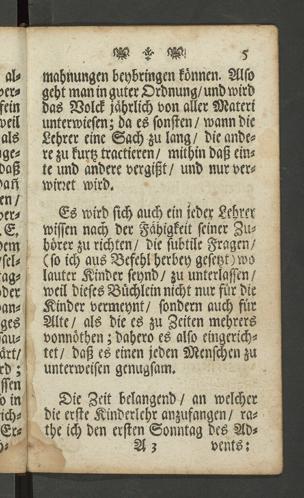 5
mahnungen beybringen können. Also
geht man in guter Ordnung/ und wird
das Volck jährlich von aller Materi
unterwiesen; da es sonsten/ wann die
Lehrer eine Sach zu lang/ die ande-
re zu kurtz tractieren/ mithin daß ein-
te und andere vergißt/ und nur ver-
wirret wird.
Es wird sich auch ein jeder Lehrer
wissen nach der Fähigkeit seiner Zu-
hörer zu richten/ die subtile Fragen/
(so ich aus Befehl herbey gesetzt) wo
lauter Kinder seynd/ zu unterlassen/
weil dieses Büchlein nicht nur für die
Kinder vermeynt/ sondern auch für
Alte/ als die es zu Zeiten mehrers
vonnöthen; dahero es also eingerich-
tet/ daß es einen jeden Menschen zu
unterweisen genugsam.
Die Zeit belangend/ an welcher
die erste Kinderlehr anzufangen/ ra-
the ich den ersten Sonntag des Ad-
A 3 vents;